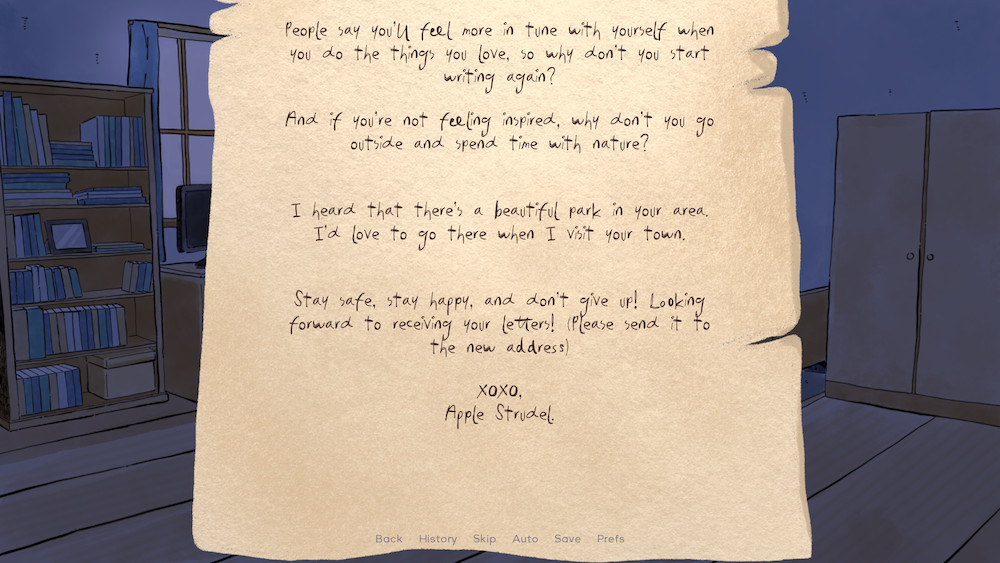 People say you'll feel more in tune with yourself when
you do the things you love, so why don't you start
writing again?
And if you're not feeling inspired, why don't you go
outside and spend time with nature?
I heard that there's a beautiful park in your area.
I'd love to go there when I visit your town.
Stay safe, stay happy, and don't give up! Looking
forward to receiving your letters! (Please send it to
the new address)
XOXO,
Apple Strudel.
Back History Skip Auto Save Prefs